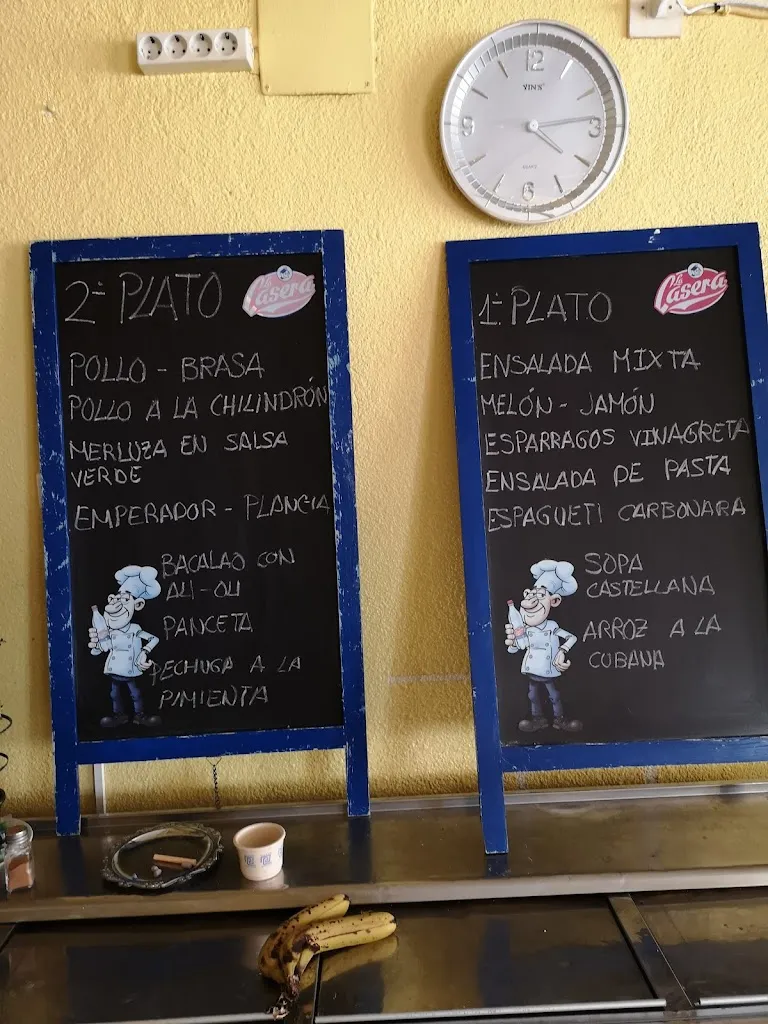 12
3
6
9
2º PLATO
La Casera
POLLO - BRASA
POLLO A LA CHILINDRÓN
MERLUZA EN SALSA
VERDE
EMPERADOR - PLANCIA
BACALAO CON
ALI-OLI
PANCETA
PECHUGA A LA
PIMIENTA
1º PLATO
La Casera
ENSALADA MIXTA
MELÓN - JAMÓN
ESPARRAGOS VINAGRETA
ENSALADA DE PASTA
ESPAGUETI CARBONARA
SOPA
CASTELLANA
ARROZ A LA
CUBANA